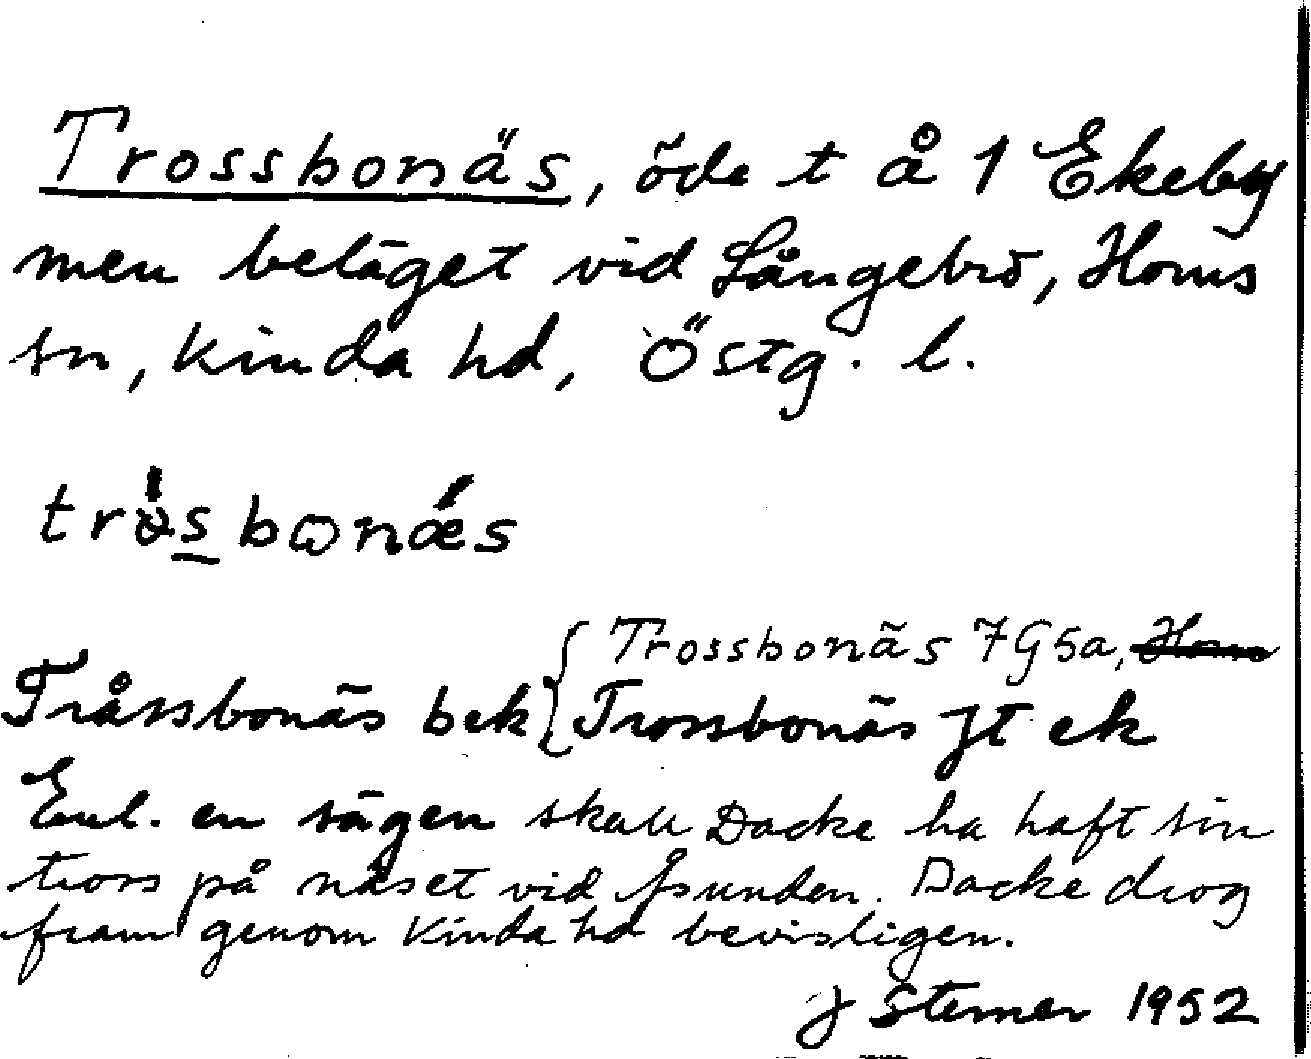 Trossbonäs, öde t å 1 Ekeby
men beläget vid Långebro, Horns
sn, Kinda hd, Östg. l.
Tråssbonäs bek { Trossbonäs 7G5a, Horns
Trossbonäs Jt ek
Enl. en sägen skall Dacke ha haft sin
tross på näset vid Åsunden. Dacke drog
fram genom Kinda hd bevisligen.
J Sterner 1952